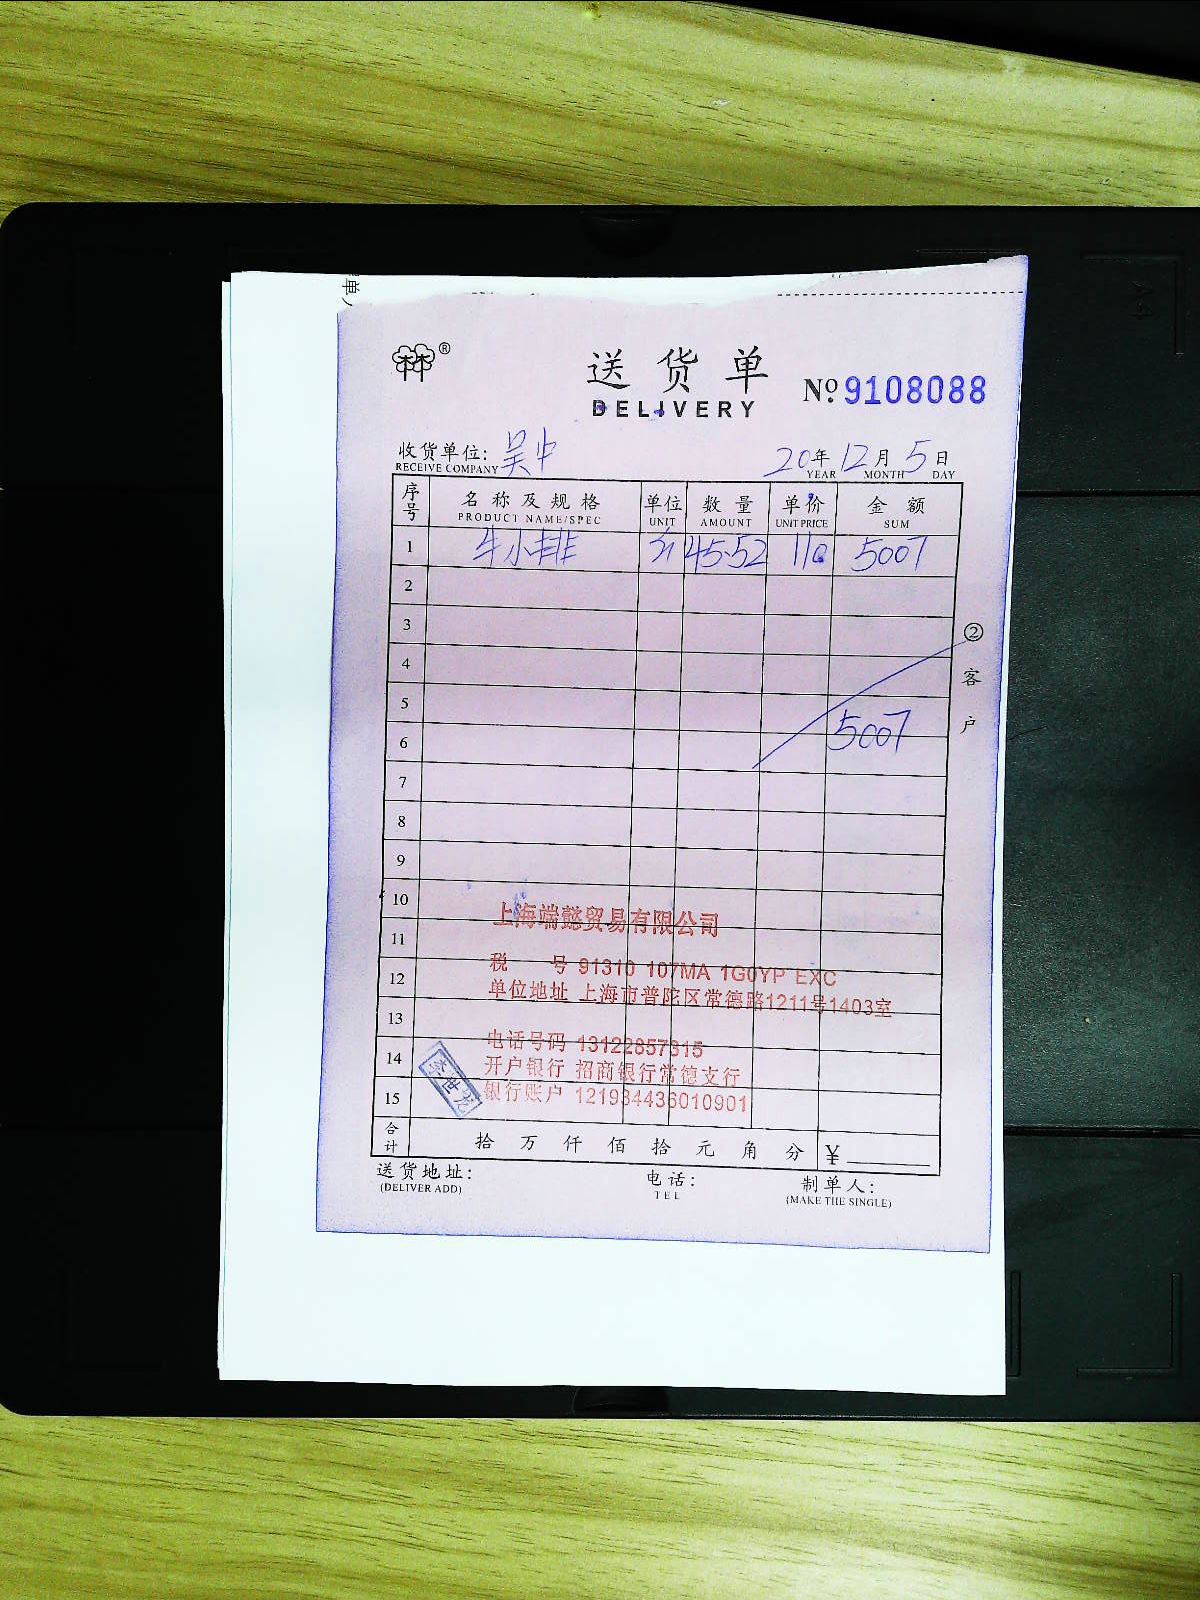 送货单
DELIVERY
№ 9108088
收货单位: 吴中
RECEIVE COMPANY
20年12月5日
YEAR MONTH DAY
序号 名称及规格 单位 数量 单价 金额
PRODUCT NAME/SPEC UNIT AMOUNT UNIT PRICE SUM
1 牛小排 斤 45.52 110 5007
2
3
4
5
6 5007
7
8
9
10
11
12
13
14
15
② 客户
上海端懿贸易有限公司
税 号 91310 107MA 1G0YP EXC
单位地址 上海市普陀区常德路1211号1403室
电话号码 13122857315
开户银行 招商银行常德支行
银行账户 121934436010901
李世龙
合计 拾万仟佰拾元角分 ¥
送货地址: 电话: 制单人:
(DELIVER ADD) TEL (MAKE THE SINGLE)